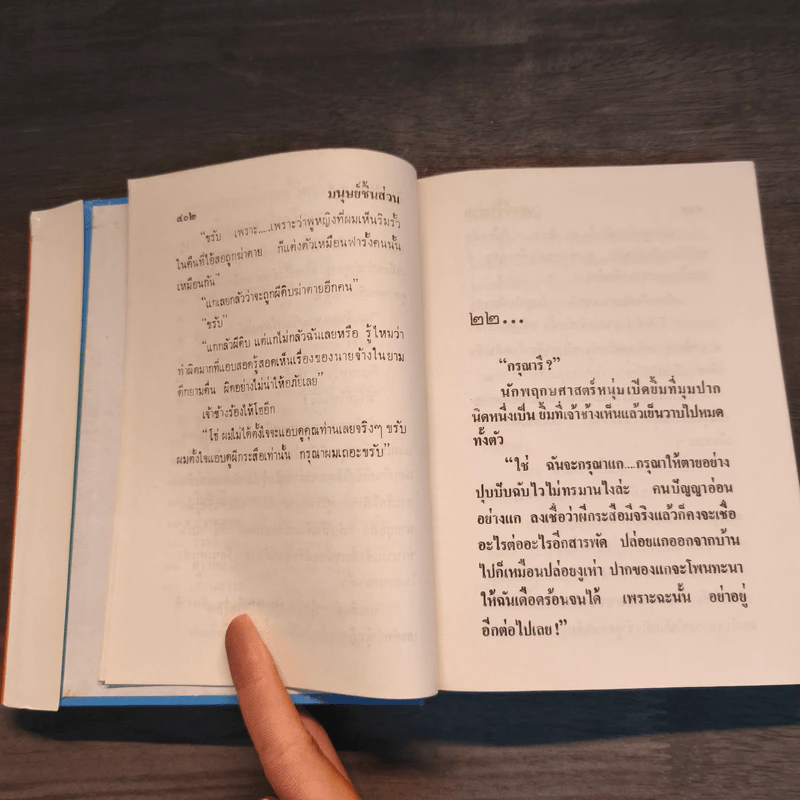 ๔๐๒
มนุษย์ชิ้นส่วน
“ขรับ เพราะ.....เพราะว่าผู้หญิงที่ผมเห็นริมรั้ว
ในคืนที่ไอ้สอถูกฆ่าตาย ก็แต่งตัวเหมือนฟารั้งคนนั้น
เหมือนกัน”
“แกเลยกลัวว่าจะถูกผีดิบฆ่าตายอีกคน”
“ขรับ”
“แกกลัวผีดิบ แต่แกไม่กลัวฉันเลยหรือ รู้ไหมว่า
ทำผิดมากที่แอบสอดรู้สอดเห็นเรื่องของนายจ้างในยาม
ดึกยามดื่น ผิดอย่างไม่น่าให้อภัยเลย”
เจ้าช้างร้องไห้โฮอีก
“โธ่ ผมไม่ได้ตั้งใจจะแอบดูคุณท่านเลยจริงๆ ขรับ
ผมตั้งใจแอบดูผีกระสือเท่านั้น กรุณาผมเถอะขรับ”
๒๒...
“กรุณารึ?”
นักพฤกษศาสตร์หนุ่มเปิดยิ้มที่มุมปาก
นิดหนึ่งเป็น ยิ้มที่เจ้าช้างเห็นแล้วเย็นวาบไปหมด
ทั้งตัว
“ใช่ ฉันจะกรุณาแก....กรุณาให้ตายอย่าง
ปุบปับฉับไวไม่ทรมานไงล่ะ คนปัญญาอ่อน
อย่างแก ลงเชื่อว่าผีกระสือมีจริงแล้วก็คงจะเชื่อ
อะไรต่ออะไรอีกสารพัด ปล่อยแกออกจากบ้าน
ไปก็เหมือนปล่อยงูเห่า ปากของแกจะโพนทะนา
ให้ฉันเดือดร้อนจนได้ เพราะฉะนั้น อย่าอยู่
อีกต่อไปเลย!”